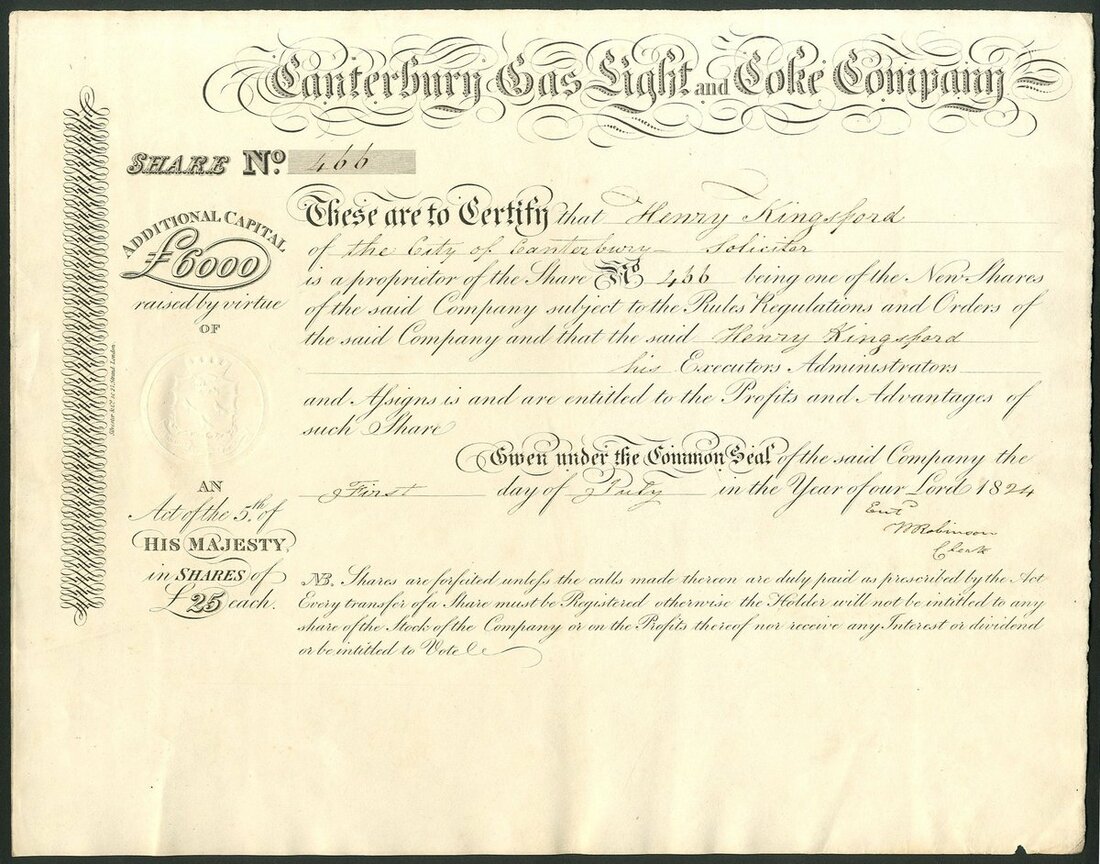 Canterbury Gas Light and Coke Company
SHARE No. 466
ADDITIONAL CAPITAL
£6000
raised by virtue
OF
AN
Act of the 5th. of
HIS MAJESTY,
in SHARES of
£25 each.
These are to Certify that Henry Kingsford
of the City of Canterbury Solicitor
is a proprietor of the Share No 466 being one of the New Shares
of the said Company subject to the Rules Regulations and Orders of
the said Company and that the said Henry Kingsford
his Executors Administrators
and Assigns is and are entitled to the Profits and Advantages of
such Share
Given under the Common Seal of the said Company the
First day of July in the Year of our Lord 1824
Entd
Robinson
Clerk
NB. Shares are forfeited unless the calls made thereon are duly paid as prescribed by the Act
Every transfer of a Share must be Registered otherwise the Holder will not be intitled to any
share of the Stock of the Company or on the Profits thereof nor receive any Interest or dividend
or be intitled to Vote &c